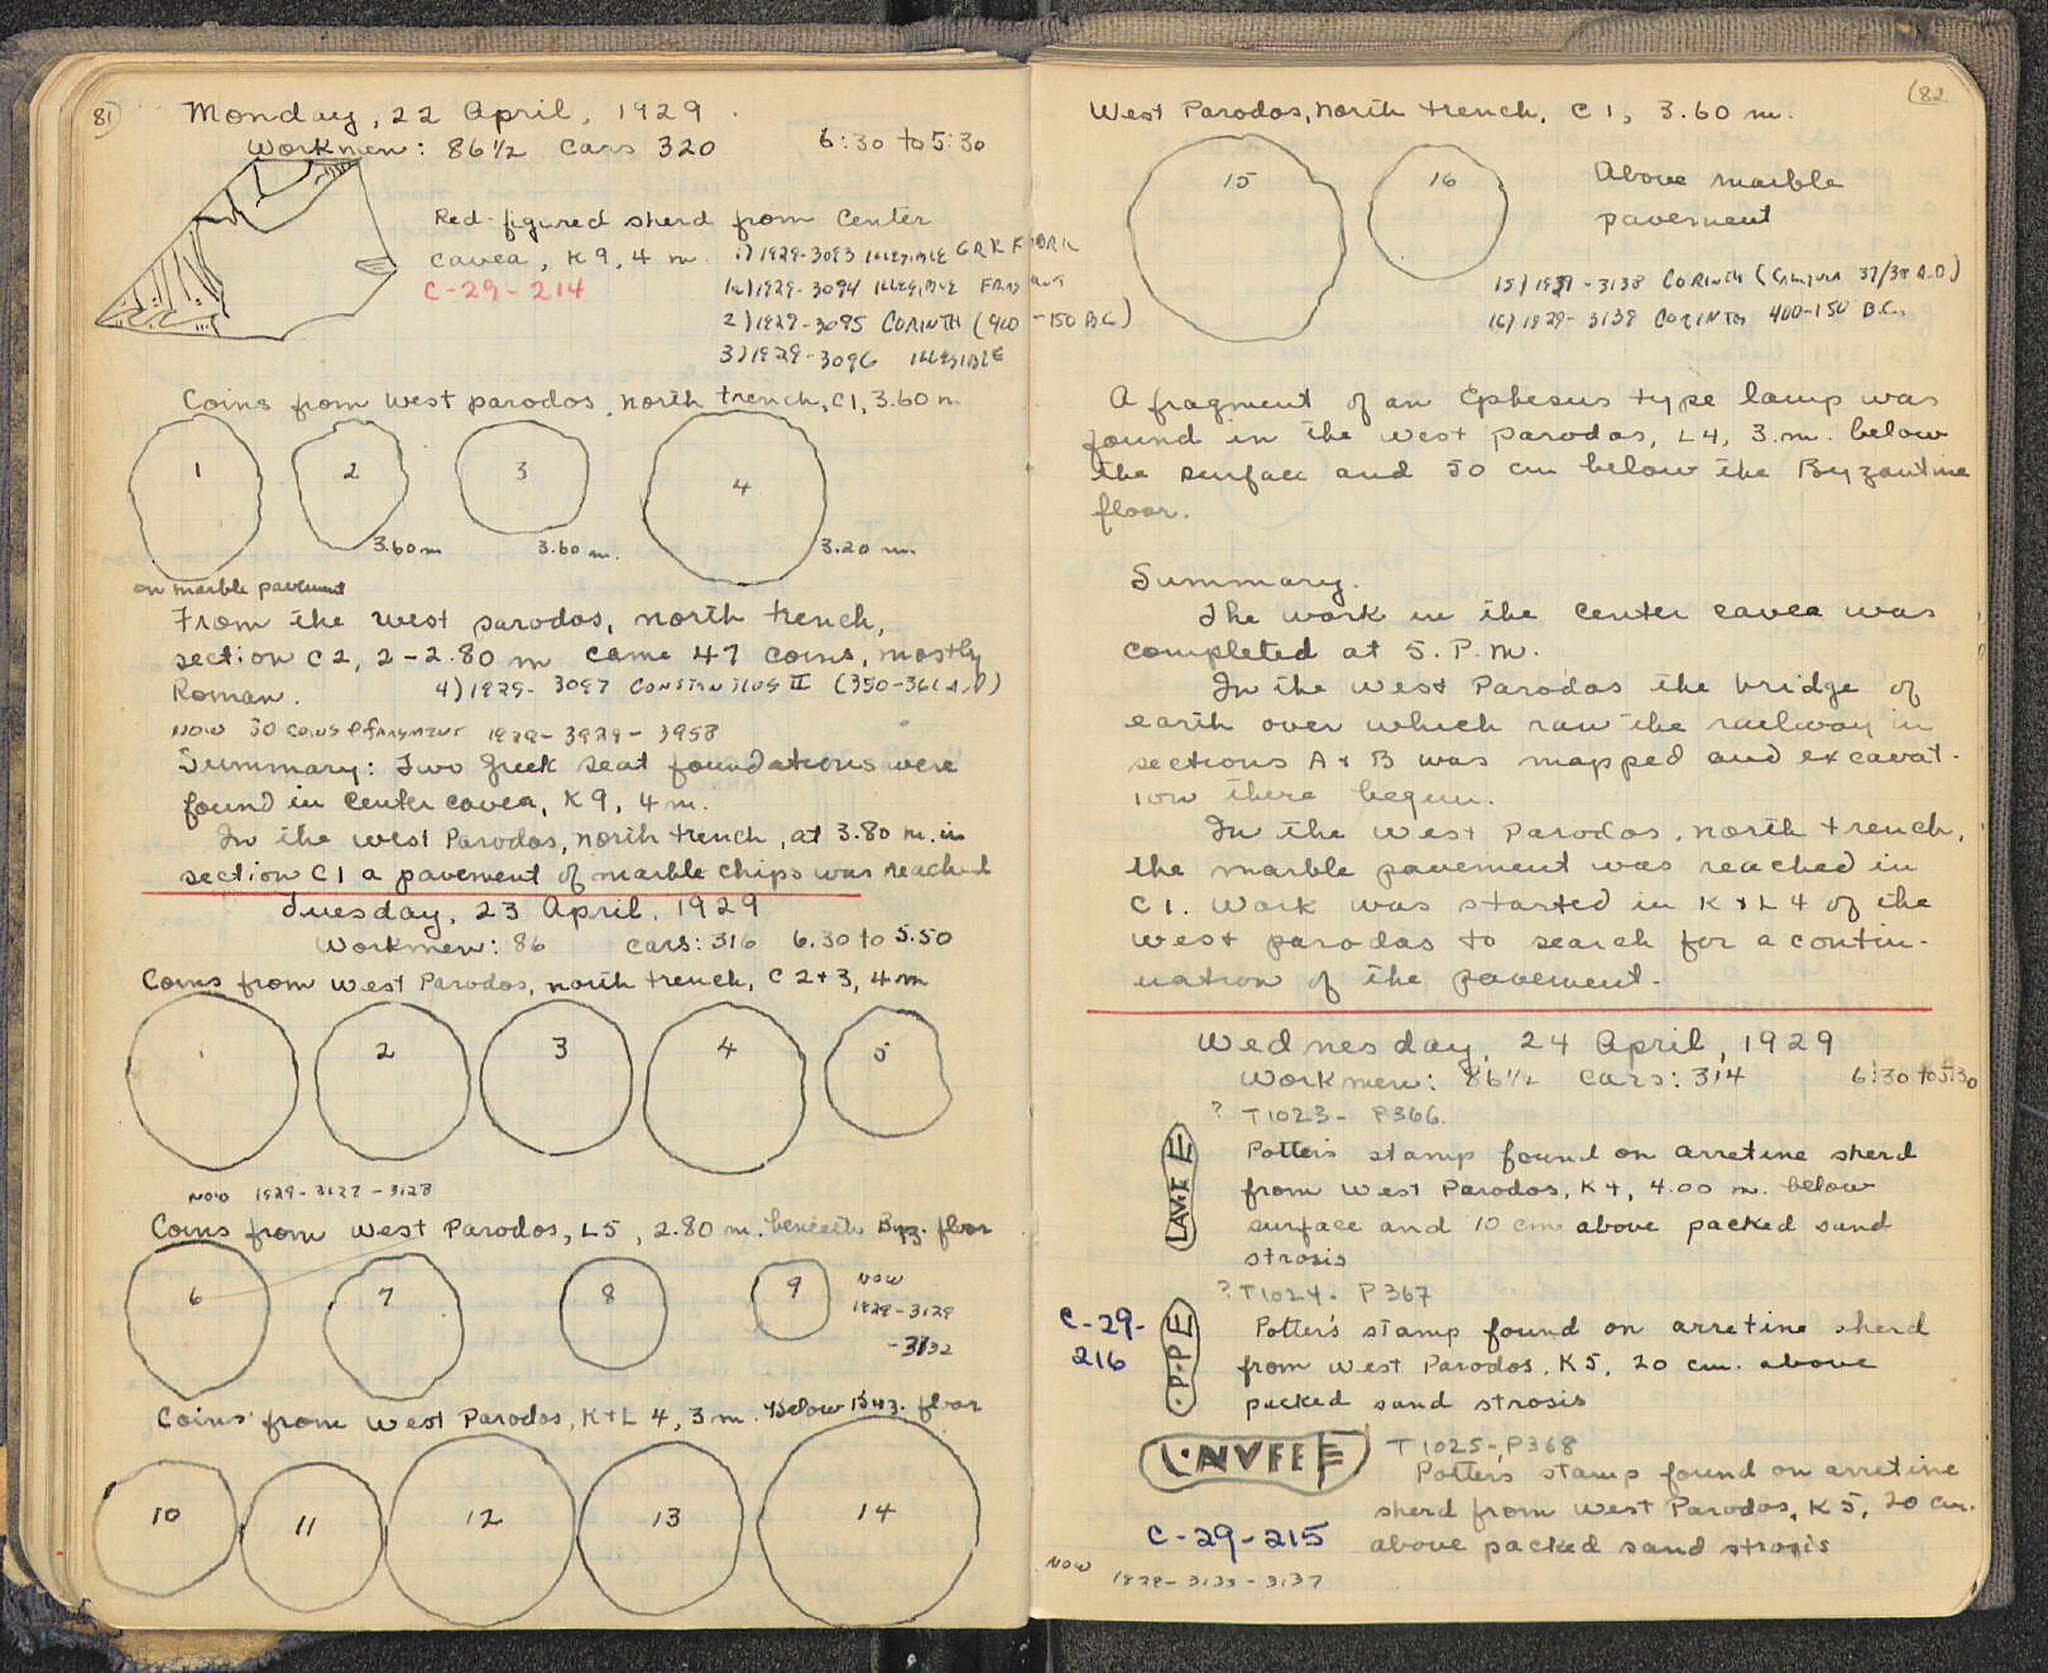 81)
Monday, 22 April, 1929
Workmen: 86½ Cars 320 6:30 to 5:30
Red-figured sherd from center
cavea, K9, 4 m.
C-29-214
1) 1929-3093 ILLEGIBLE GRK
1a) 1929-3094 ILLEGIBLE
2) 1929-3095 CORINTH (400-150 B.C.)
3) 1929-3096 ILLEGIBLE
Coins from west parodos, north trench, C1, 3.60 m.
1
2
3
4
3.60 m
3.60 m.
3.20 m.
on marble pavement
From the west parodos, north trench,
section C2, 2-2.80 m came 47 coins, mostly
Roman.
4) 1929-3097 CONSTANTIUS II (350-361 A.D)
NOW 30 COINS & FRAGMENT 1929-3929-3958
Summary: Two Greek seat foundations were
found in center cavea, K9, 4 m.
In the west Parodos, north trench, at 3.80 m. in
section C1 a pavement of marble chips was reached
Tuesday, 23 April, 1929
Workmen: 86 cars: 316 6.30 to 5.50
Coins from West Parodos, north trench, C 2+3, 4 m
1
2
3
4
5
NOW 1929-3127-3128
Coins from West Parodos, L5, 2.80 m. beneath Byz. floor
6
7
8
9
NOW
1929-3129
-3132
Coins from West Parodos, K+L 4, 3 m. below Byz. floor
10
11
12
13
14
(82
West Parodos, north trench, C1, 3.60 m.
15
16
Above marble
pavement
15) 1929-3138 CORINTH ( 37/38 A.D)
16) 1929-3139 CORINTH 400-150 B.C.
A fragment of an Ephesus type lamp was
found in the west parodos, L4, 3.m. below
the surface and 50 cm below the Byzantine
floor.
Summary.
The work in the center cavea was
completed at 5. P.M.
In the West Parodos the bridge of
earth over which ran the railway in
sections A + B was mapped and excavat-
ion there begun.
In the West Parodos, north trench,
the marble pavement was reached in
C1. Work was started in K+L4 of the
west parodos to search for a contin-
uation of the pavement.
Wednesday, 24 April, 1929
Workmen: 86½ Cars: 314 6:30 to 5:30
? T1023- P366.
Potter's stamp found on arretine sherd
from West Parodos, K4, 4.00 m. below
surface and 10 cm above packed sand
strosis
? T1024- P367
C-29-
216
·P·PE
Potter's stamp found on arretine sherd
from West Parodos, K5, 20 cm. above
packed sand strosis
L·NVFEE
T1025-P368
Potter's stamp found on arretine
sherd from West Parodos, K5, 20 cm.
above packed sand strosis
C-29-215
NOW
1929-3133-3137